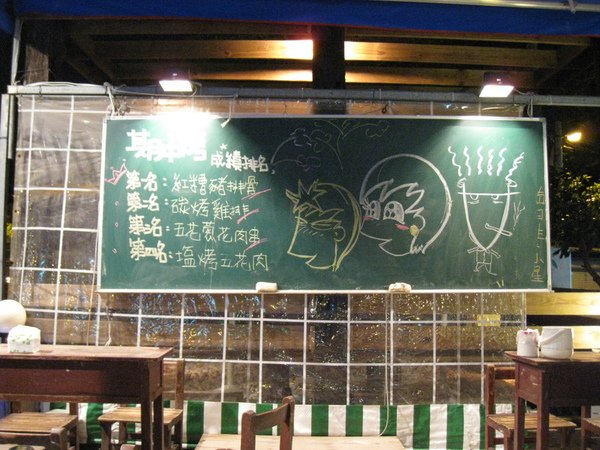 期末考 成績排名
第一名：紅糟豬排骨
第二名：碳烤雞排
第三名：五花蔥花肉串
第四名：塩烤五花肉